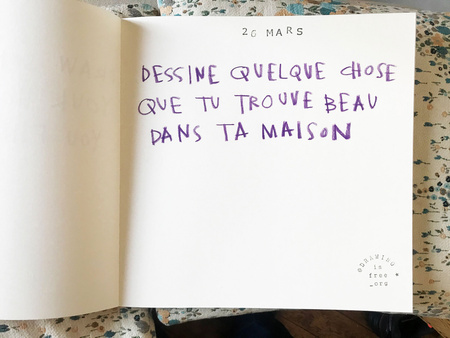 26 MARS
DESSINE QUELQUE CHOSE
QUE TU TROUVE BEAU
DANS TA MAISON
@DRAWING
is
free
_org